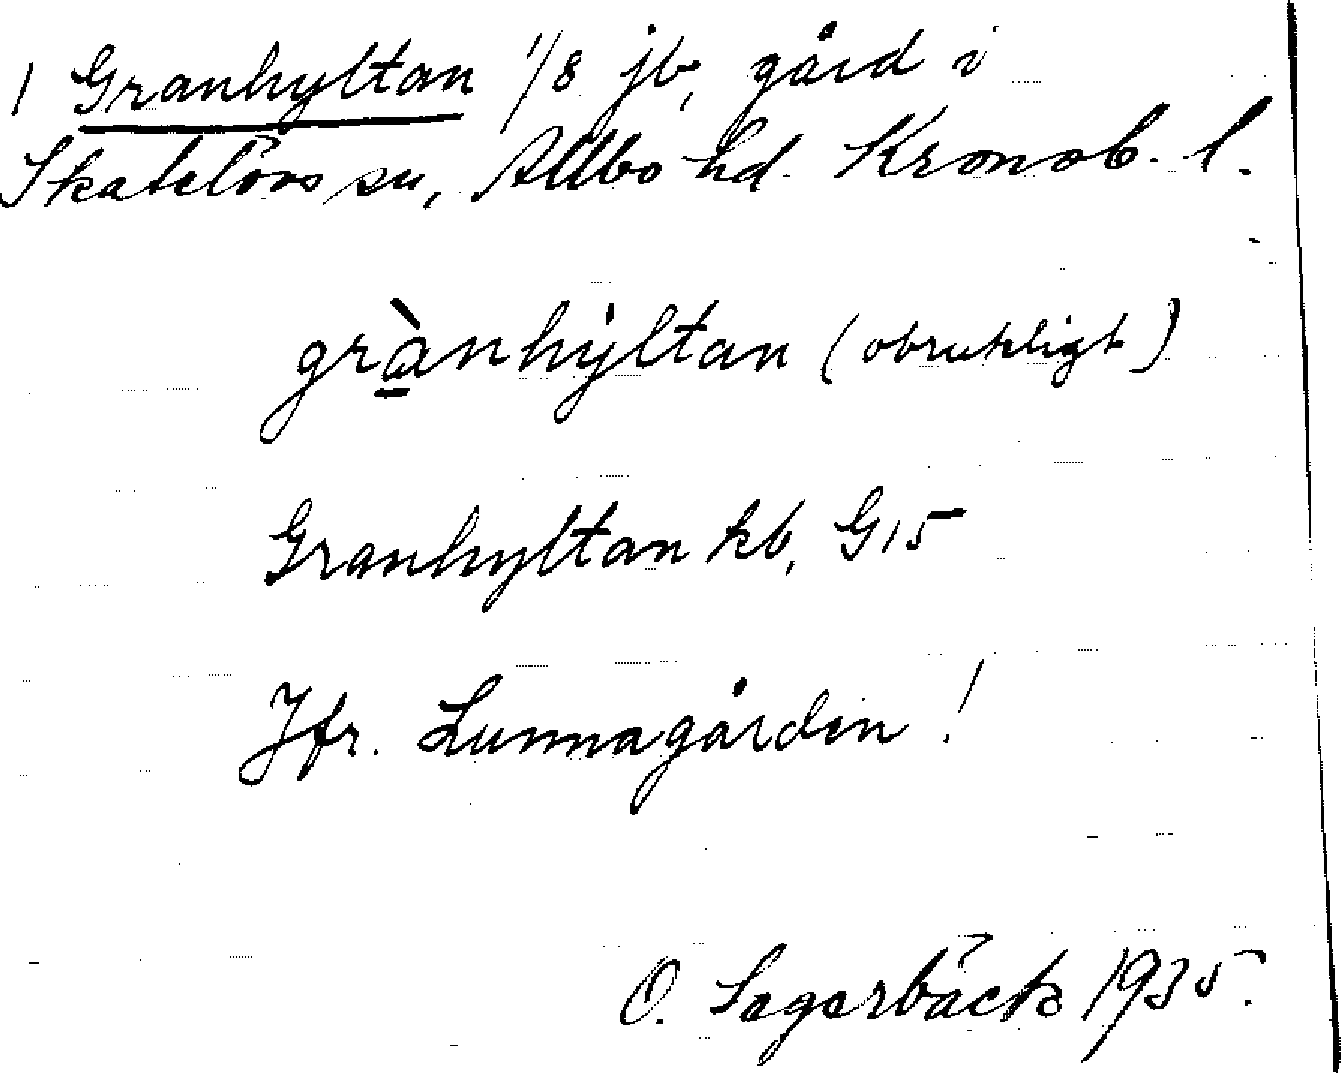 1 Granhyltan 1/8 jb, gård i
Skatelövs sn, Allbo hd. Kronob. l.
grànhýltan (obrukligt)
Granhyltan kb, G15
Jfr. Lunnagården!
O. Sagerbäck 1935.